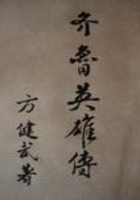 齐鲁英雄傳
方健武著